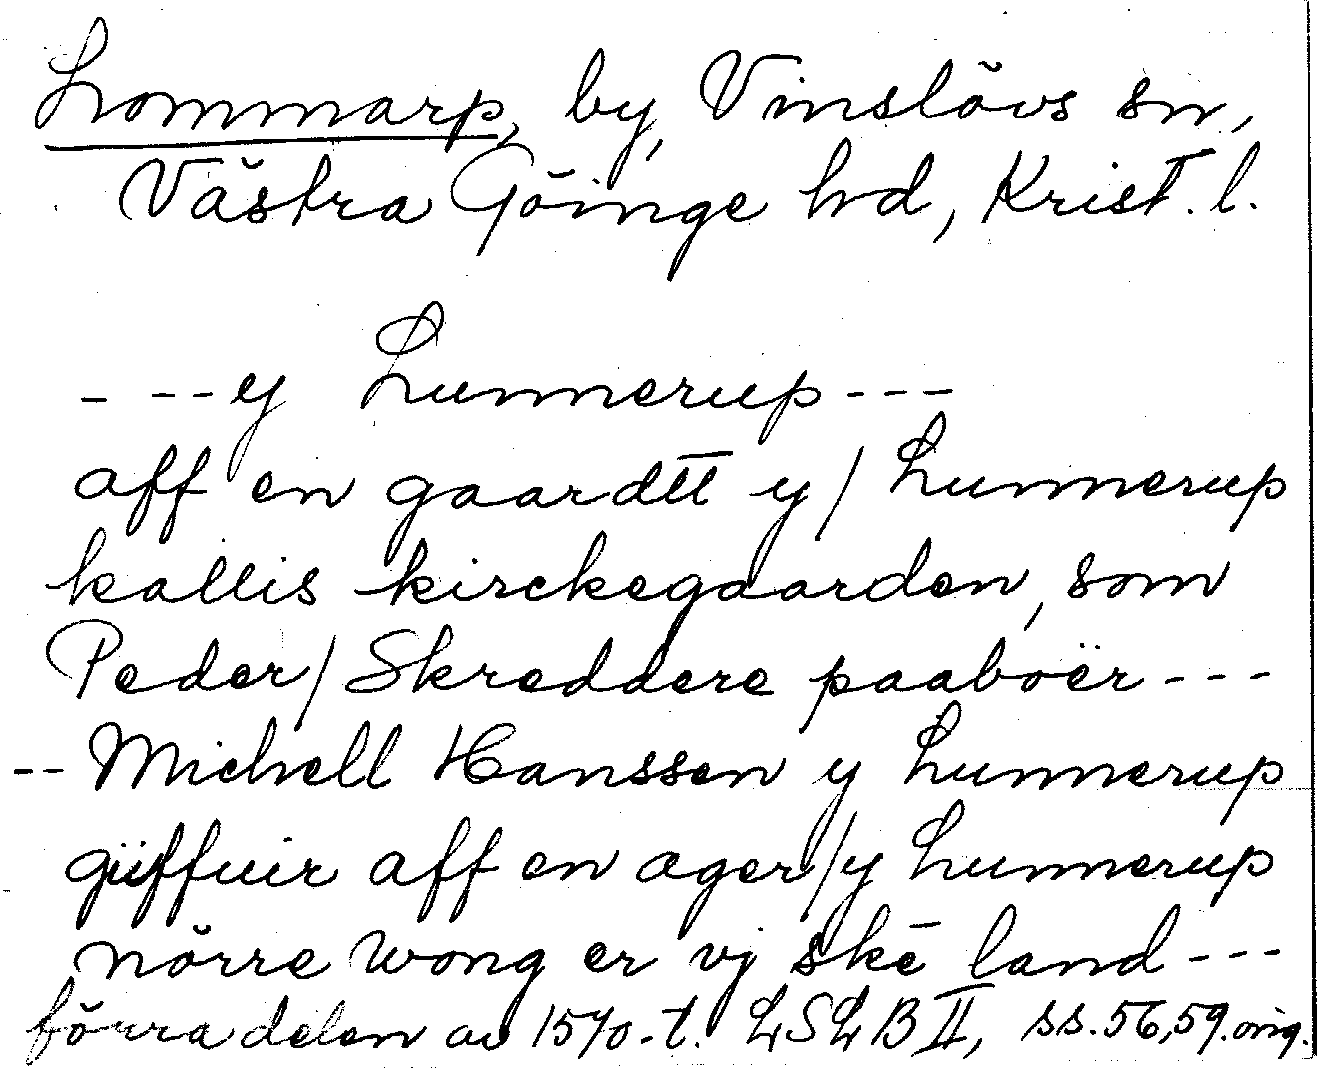 Lommarp, by, Vinslövs sn,
Västra Göinge hd, Krist. l.
- --- y Lunnerup ---
aff en gaardtt y / Lunnerup
kallis kirckegaarden, som
Peder / Skreddere paaboër ---
-- Michell Hanssen y Lunnerup
giiffuir aff en ager / y Lunnerup
nörre wong er vj skē land ---
förra delen av 1570-t. LSLB II, ss. 56, 59. orig.